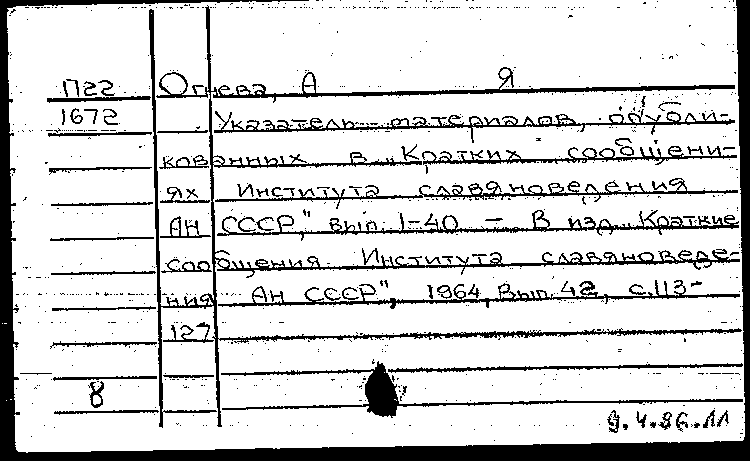 П22 Огнева, А Я
1672 Указатель материалов, опубли-
кованных в „Кратких сообщени-
ях Института славяноведения
АН СССР," вып. 1-40 – В изд. Краткие
сообщения Института славяноведе-
ния АН СССР", 1964, Вып. 42, с.113-
127
8
9.4.86.11